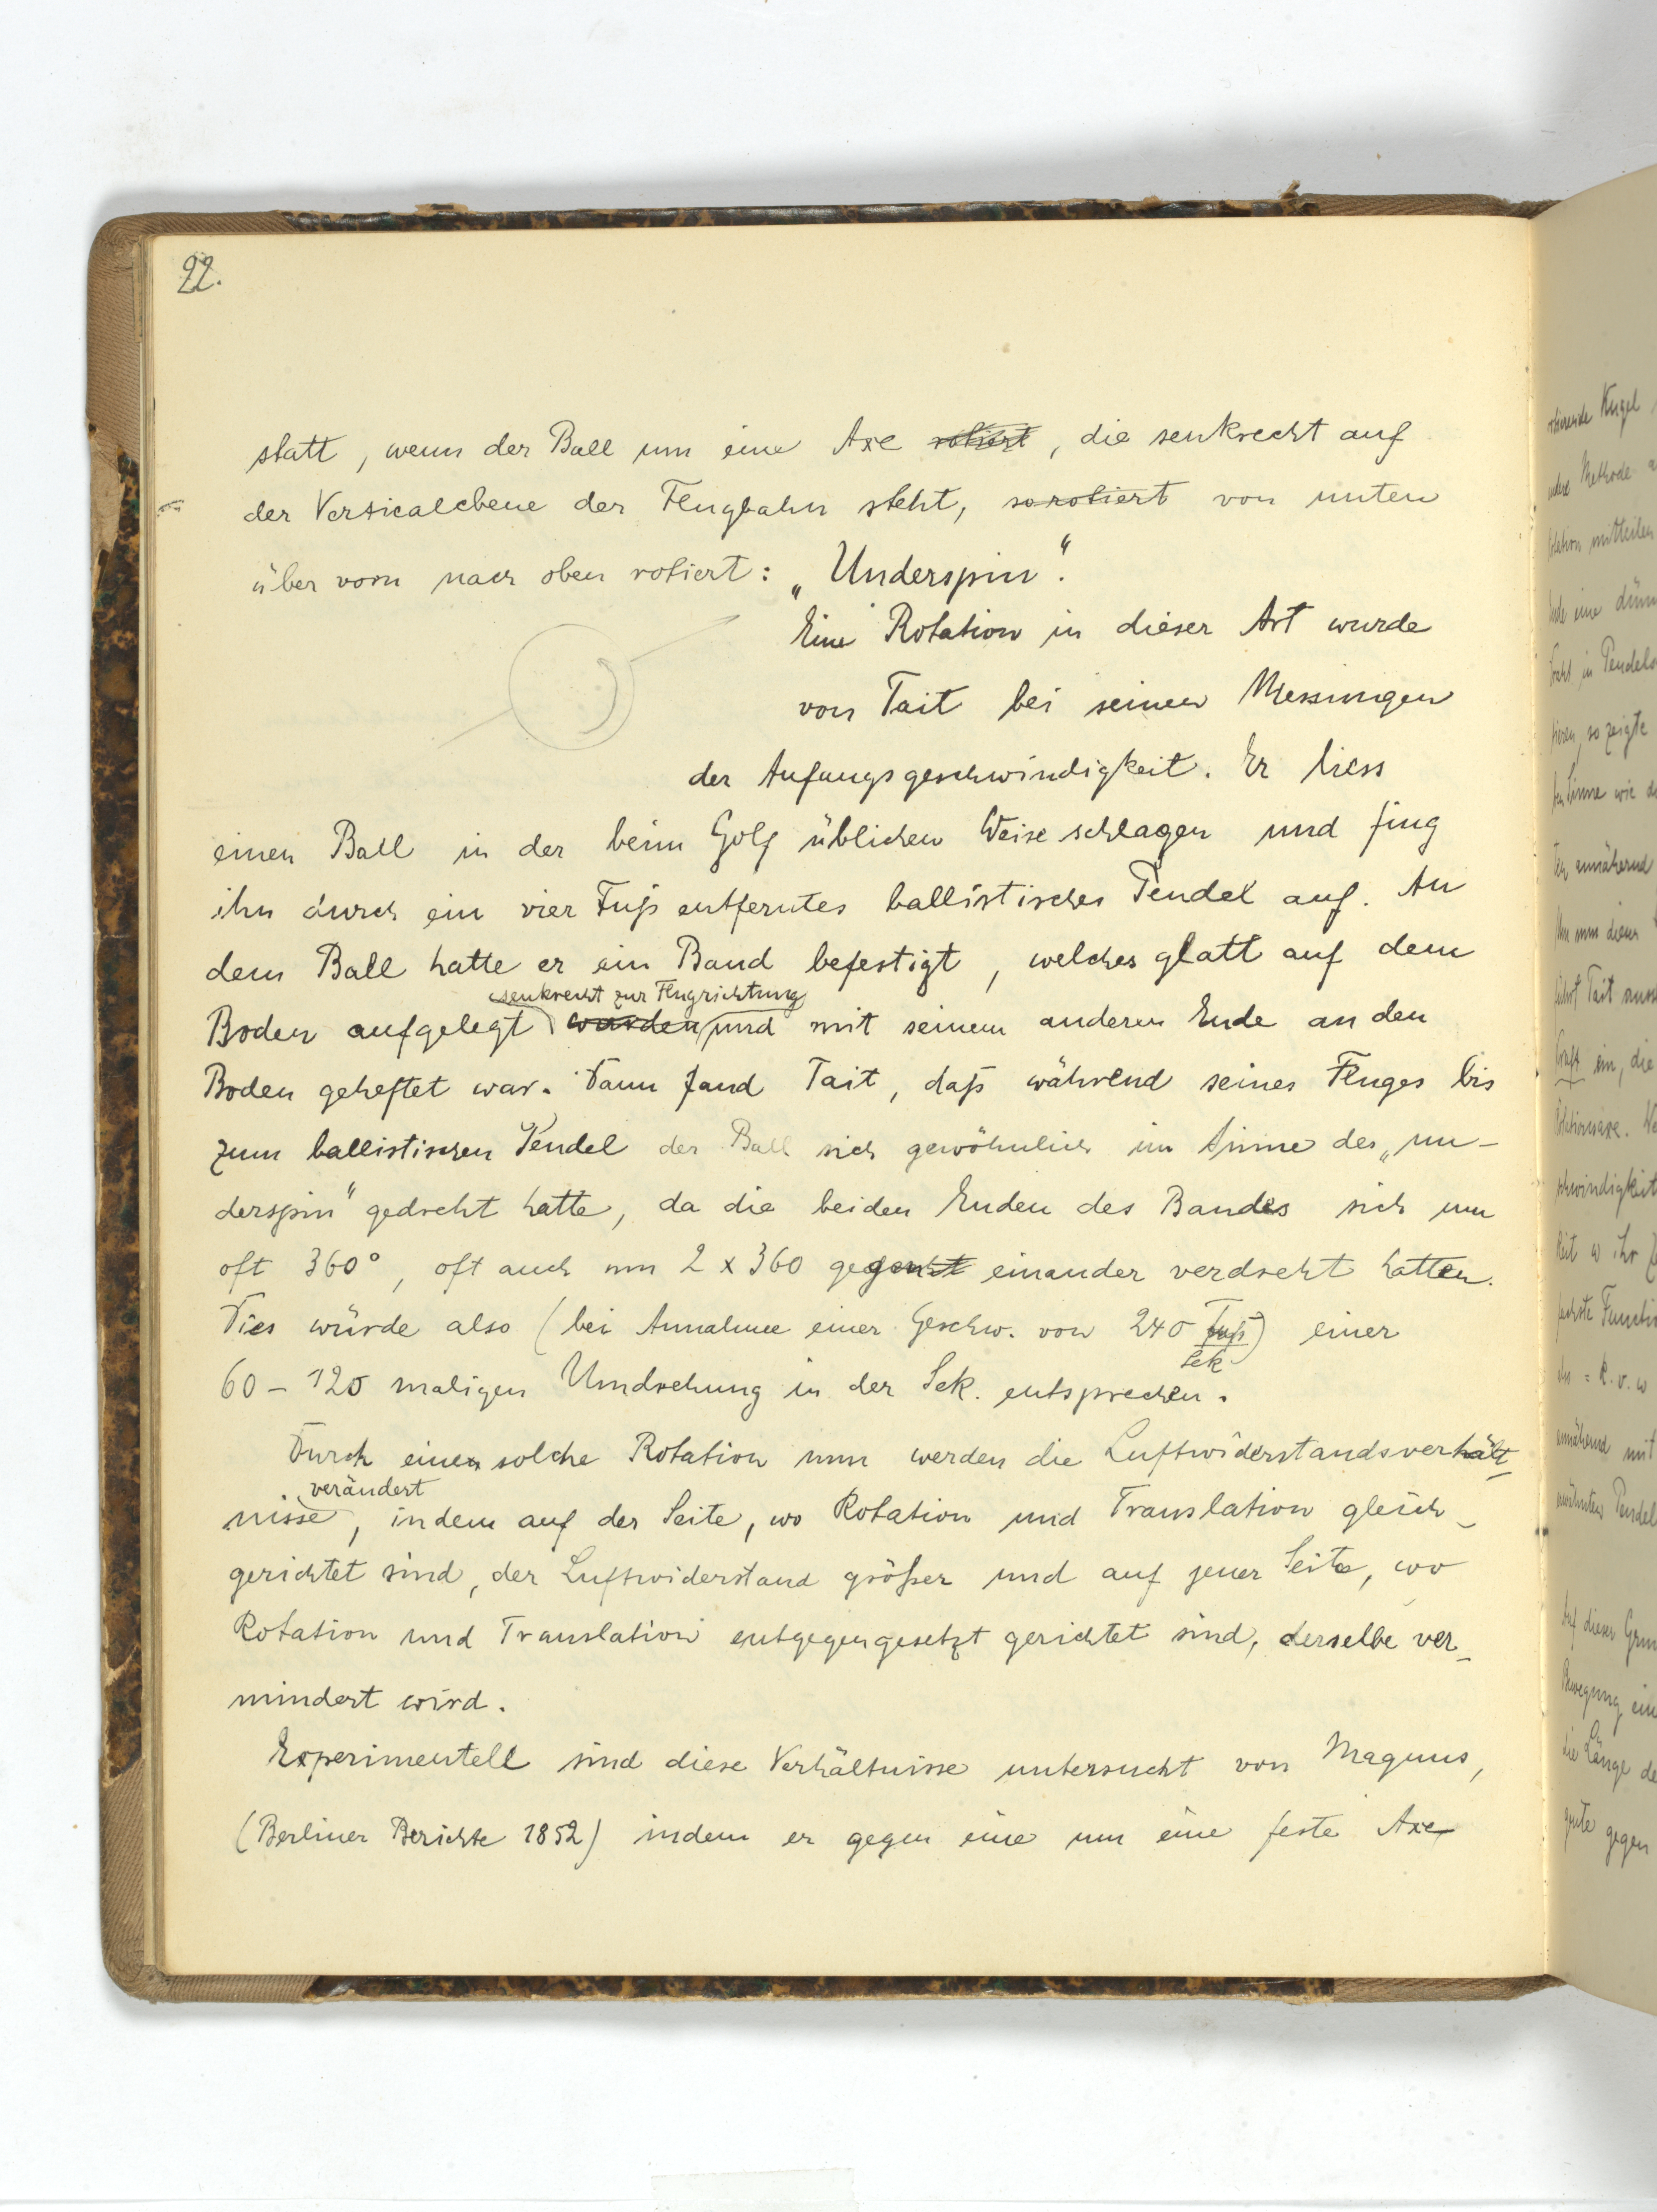 22.
statt, wenn der Ball um eine Axe rotiert, die senkrecht auf
der Verticalebene der Flugbahn steht, so rotiert von unten
über vorn nach oben rotiert: „Underspin“.
Eine Rotation in dieser Art wurde
von Tait bei seinen Messungen
der Anfangsgeschwindigkeit. Er liess
einen Ball in der beim Golf üblichen Weise schlagen und fing
ihn durch ein vier Fuß entferntes ballistisches Pendel auf. An
dem Ball hatte er ein Band befestigt, welches glatt auf dem
senkrecht zur Flugrichtung
Boden aufgelegt wurden und mit seinem anderen Ende an den
Boden geheftet war. Dann fand Tait, daß während seines Fluges bis
zum ballistischen Pendel der Ball sich gewöhnlich im Sinne des „un-
derspin“ gedreht hatte, da die beiden Enden des Bandes sich um
oft 360°, oft auch um 2 x 360 gegen einander verdreht hatten.
Dies würde also (bei Annahme einer Geschw. von 240 Fuß/Sek) einer
60 - 120 maligen Umdrehung in der Sek. entsprechen.
Durch einen solche Rotation nun werden die Luftwiderstandsverhält-
verändert
nisse, indem auf der Seite, wo Rotation und Translation gleich-
gerichtet sind, der Luftwiderstand größer und auf jener Seite, wo
Rotation und Translation entgegengesetzt gerichtet sind, derselbe ver-
mindert wird.
Experimentell sind diese Verhältnisse untersucht von Magnus,
(Berliner Berichte 1852) indem er gegen eine um eine feste Axe